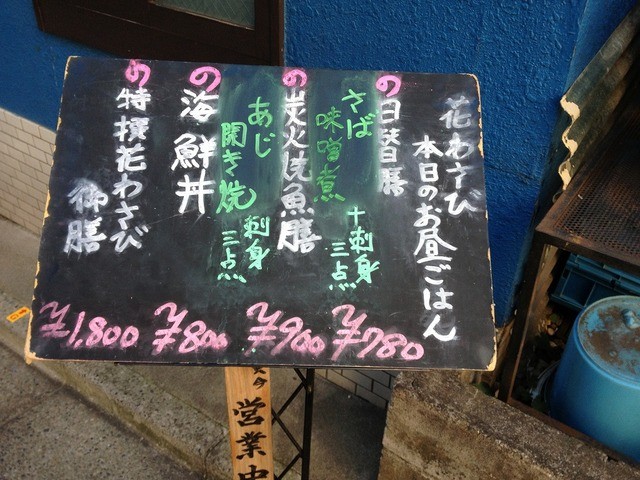 花わさび
本日のお昼ごはん
の日替膳
さば
味噌煮
+刺身
三点
¥780
の炭火焼魚膳
あじ
開き焼
刺身
三点
¥900
の海鮮丼
¥800
の特撰花わさび
御膳
¥1,800
営業中